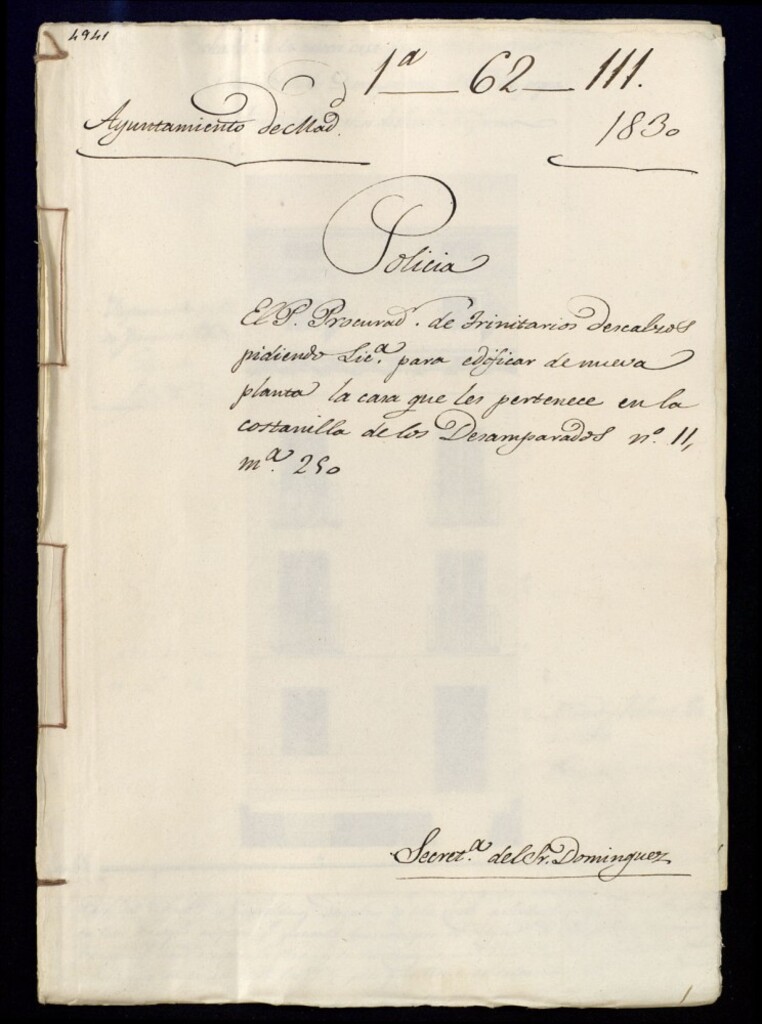 4941
1ª 62 111.
Ayuntamiento de Mad.d
1830
Policia
El P. Procurad.r de Trinitarios descalzos
pidiendo Lic.ª para edificar de nueva
planta la casa que les pertenece en la
costanilla de los Desamparados n.º 11,
m.ª 250
Secret.ª del Sr. Dominguez